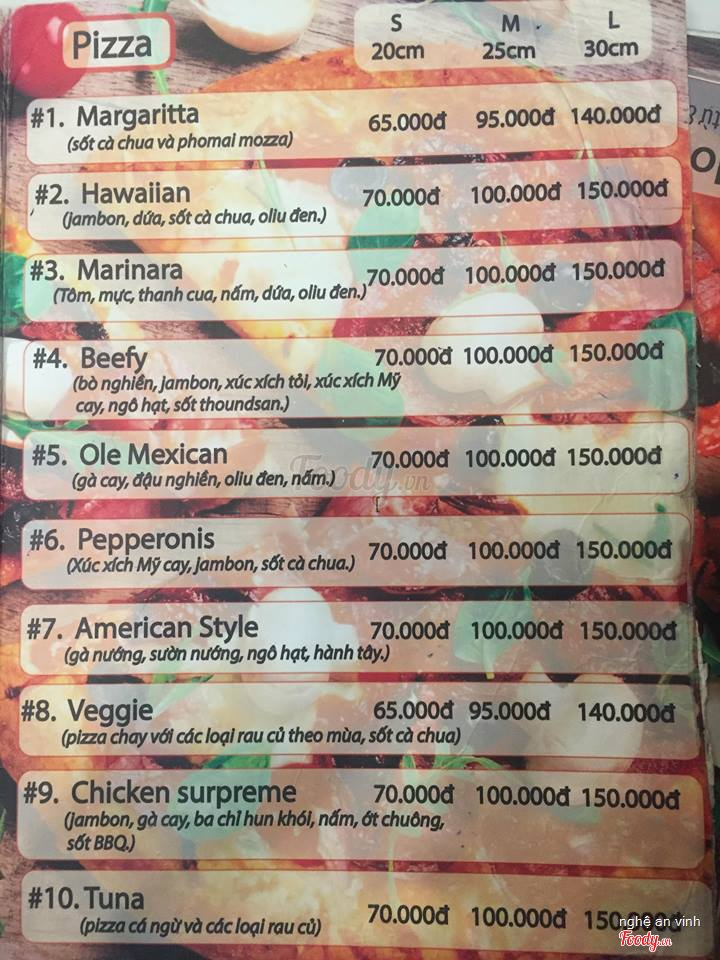 Pizza
S M L
20cm 25cm 30cm
#1. Margaritta 65.000đ 95.000đ 140.000đ
(sốt cà chua và phomai mozza)
#2. Hawaiian 70.000đ 100.000đ 150.000đ
(Jambon, dứa, sốt cà chua, oliu đen.)
#3. Marinara 70.000đ 100.000đ 150.000đ
(Tôm, mực, thanh cua, nấm, dứa, oliu đen.)
#4. Beefy 70.000đ 100.000đ 150.000đ
(bò nghiền, jambon, xúc xích tỏi, xúc xích Mỹ
cay, ngô hạt, sốt thoundsan.)
#5. Ole Mexican 70.000đ 100.000đ 150.000đ
(gà cay, đậu nghiền, oliu đen, nấm.)
Foody.vn
#6. Pepperonis 70.000đ 100.000đ 150.000đ
(Xúc xích Mỹ cay, jambon, sốt cà chua.)
#7. American Style 70.000đ 100.000đ 150.000đ
(gà nướng, sườn nướng, ngô hạt, hành tây.)
#8. Veggie 65.000đ 95.000đ 140.000đ
(pizza chay với các loại rau củ theo mùa, sốt cà chua)
#9. Chicken surpreme 70.000đ 100.000đ 150.000đ
(Jambon, gà cay, ba chỉ hun khói, nấm, ớt chuông,
sốt BBQ.)
#10. Tuna 70.000đ 100.000đ 150.000đ
(pizza cá ngừ và các loại rau củ)
nghệ an vinh
Foody.vn